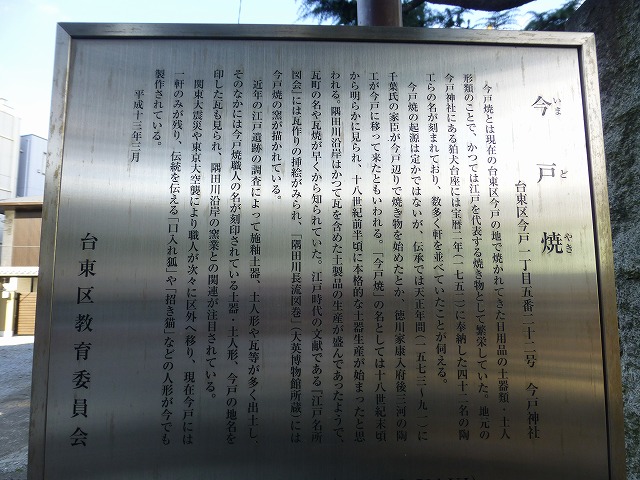 今戸焼
いまどやき
台東区今戸一丁目五番二十二号　今戸神社
今戸焼とは現在の台東区今戸の地で焼かれてきた日用品の土器類・土人
形類のことで、かつては江戸を代表する焼き物として繁栄していた。地元の
今戸神社にある狛犬台座には宝暦二年（一七五二）に奉納した四十二名の陶
工らの名が刻まれており、数多く軒を並べていたことが伺える。
今戸焼の起源は定かではないが、伝承では天正年間（一五七三〜九一）に
千葉氏の家臣が今戸辺りで焼き物を始めたとか、徳川家康入府後三河の陶
工が今戸に移って来たともいわれる。「今戸焼」の名としては十八世紀末頃
から明らかに見られ、十八世紀前半頃に本格的な土器生産が始まったと思
われる。隅田川沿岸はかつて瓦を含めた土製品の生産が盛んであったようで、
瓦町の名や瓦焼が早くから知られていた。江戸時代の文献である「江戸名所
図会」には瓦作りの挿絵がみられ、「隅田川長流図巻」（大英博物館所蔵）には
今戸焼の窯が描かれている。
近年の江戸遺跡の調査によって施釉土器、土人形や瓦等が多く出土し、
そのなかには今戸焼職人の名が刻印されている土器・土人形、今戸の地名を
印した瓦も見られ、隅田川沿岸の窯業との関連が注目されている。
関東大震災や東京大空襲により職人が次々に区外へ移り、現在今戸には
一軒のみが残り、伝統を伝える「口入れ狐」や「招き猫」などの人形が今でも
製作されている。
平成十三年三月
台東区教育委員会